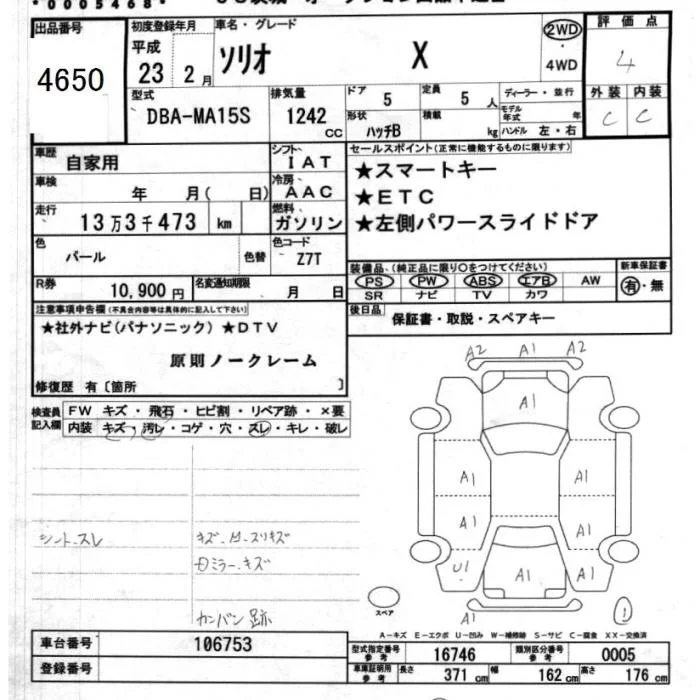 *0005468*
出品番号
4650
初度登録年月
平成
23 2月
車名・グレード
ソリオ X
2WD
・
4WD
評価点
4
外装 内装
C C
型式
DBA-MA15S
排気量
1242
CC
ドア
5
定員
5 人
形状
ハッチB
積載
kg
ディーラー・並行
モデル年式 年
ハンドル 左・右
車歴
自家用
シフト
IAT
車検
年 月( 日)
冷房
AAC
走行
13万3千473 km
燃料
ガソリン
色
パール
色替
色コード
Z7T
R券
10,900円
名変通知期限
月 日
セールスポイント(正常に機能するものに限ります)
★スマートキー
★ETC
★左側パワースライドドア
装備品、(純正品に限り○をつけてください)
PS PW ABS エアB AW
SR ナビ TV カワ
新車保証書
有・無
後日品
保証書・取説・スペアキー
注意事項申告欄(不具合内容等は具体的に記入して下さい)
★社外ナビ(パナソニック) ★DTV
原則ノークレーム
修復歴 有〔箇所 〕
検査員記入欄
FW キズ・飛石・ヒビ割・リペア跡・×要
内装 キズ・汚レ・コゲ・穴・スレ・キレ・破レ
シートスレ
キズ・凹・スリキズ
ミラーキズ
カンバン跡
A2 A1 A2
A1
A1 A1
A1 A1
U1 A1 A1
A1
スペア
A-キズ E-エクボ U-凹み W-補修跡 S-サビ C-腐食 XX-交換済
車台番号
106753
登録番号
型式指定番号 参考
16746
類別区分番号 参考
0005
車庫証明用 参考
長さ 371cm 幅 162cm 高さ 176cm